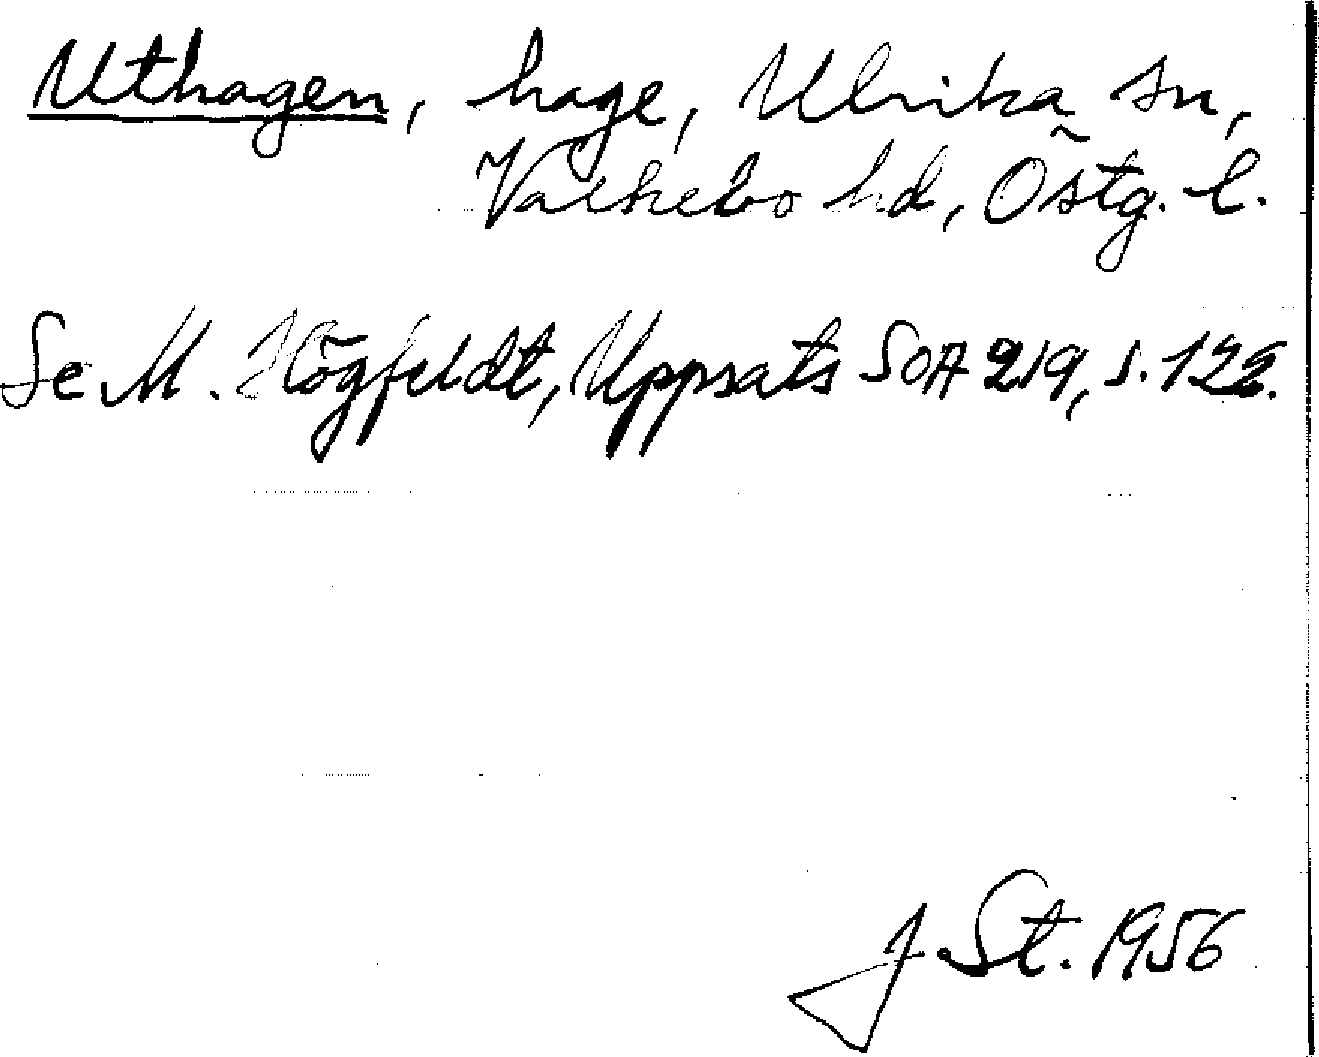 Uthagen, hage, Ulrika sn,
Valkebo hd, Östg. l.
Se M. Högfeldt, Uppsats SOA 219, s. 122.
J St. 1956